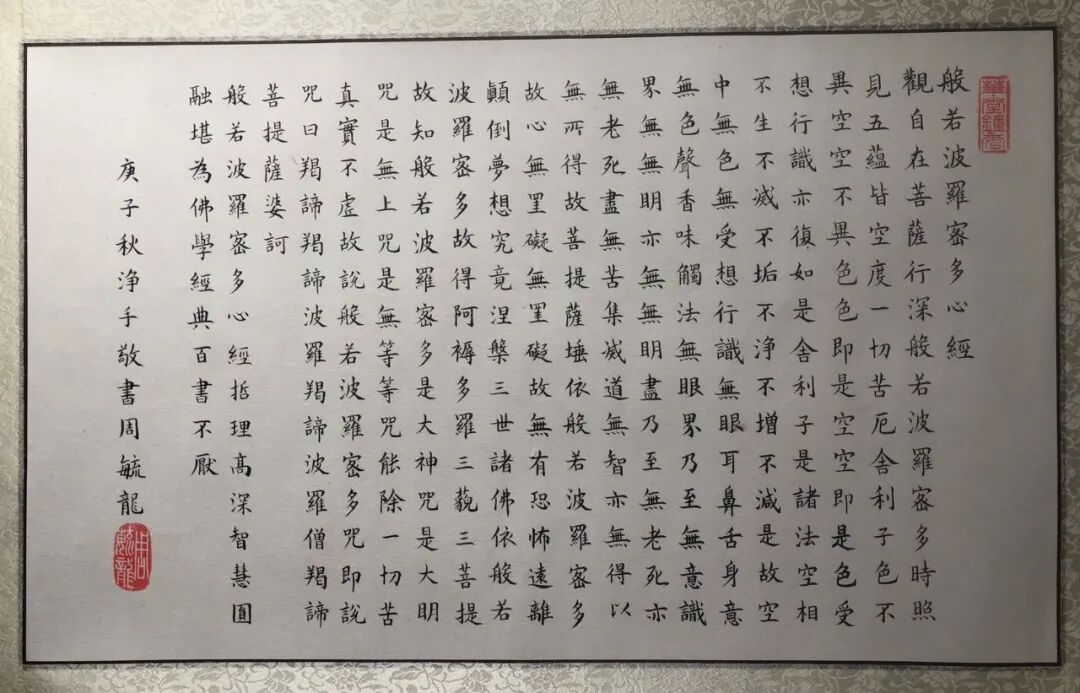 般若波羅密多心經
觀自在菩薩行深般若波羅密多時照
見五蘊皆空度一切苦厄舍利子色不
異空空不異色色即是空空即是色受
想行識亦復如是舍利子是諸法空相
不生不滅不垢不浄不增不減是故空
中無色無受想行識無眼耳鼻舌身意
無色聲香味觸法無眼界乃至無意識
界無無明亦無無明盡乃至無老死亦
無老死盡無苦集滅道無智亦無得以
無所得故菩提薩埵依般若波羅密多
故心無罣礙無罣礙故無有恐怖遠離
顛倒夢想究竟涅槃三世諸佛依般若
波羅密多故得阿褥多羅三藐三菩提
故知般若波羅密多是大神咒是大明
咒是無上咒是無等等咒能除一切苦
真實不虛故說般若波羅密多咒即說
咒曰羯諦羯諦波羅羯諦波羅僧羯諦
菩提薩婆訶
般若波羅密多心經哲理高深智慧圓
融堪為佛學經典百書不厭
庚子秋浄手敬書周毓龍
周毓龍